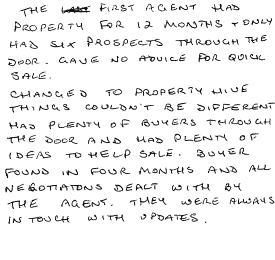 THE FIRST AGENT HAD
PROPERTY FOR 12 MONTHS + ONLY
HAD SIX PROSPECTS THROUGH THE
DOOR. GAVE NO ADVICE FOR QUICK
SALE.
CHANGED TO PROPERTY HIVE
THINGS COULDN'T BE DIFFERENT
HAD PLENTY OF BUYERS THROUGH
THE DOOR AND HAD PLENTY OF
IDEAS TO HELP SALE. BUYER
FOUND IN FOUR MONTHS AND ALL
NEGOTIATONS DEALT WITH BY
THE AGENT. THEY WERE ALWAYS
IN TOUCH WITH UPDATES.